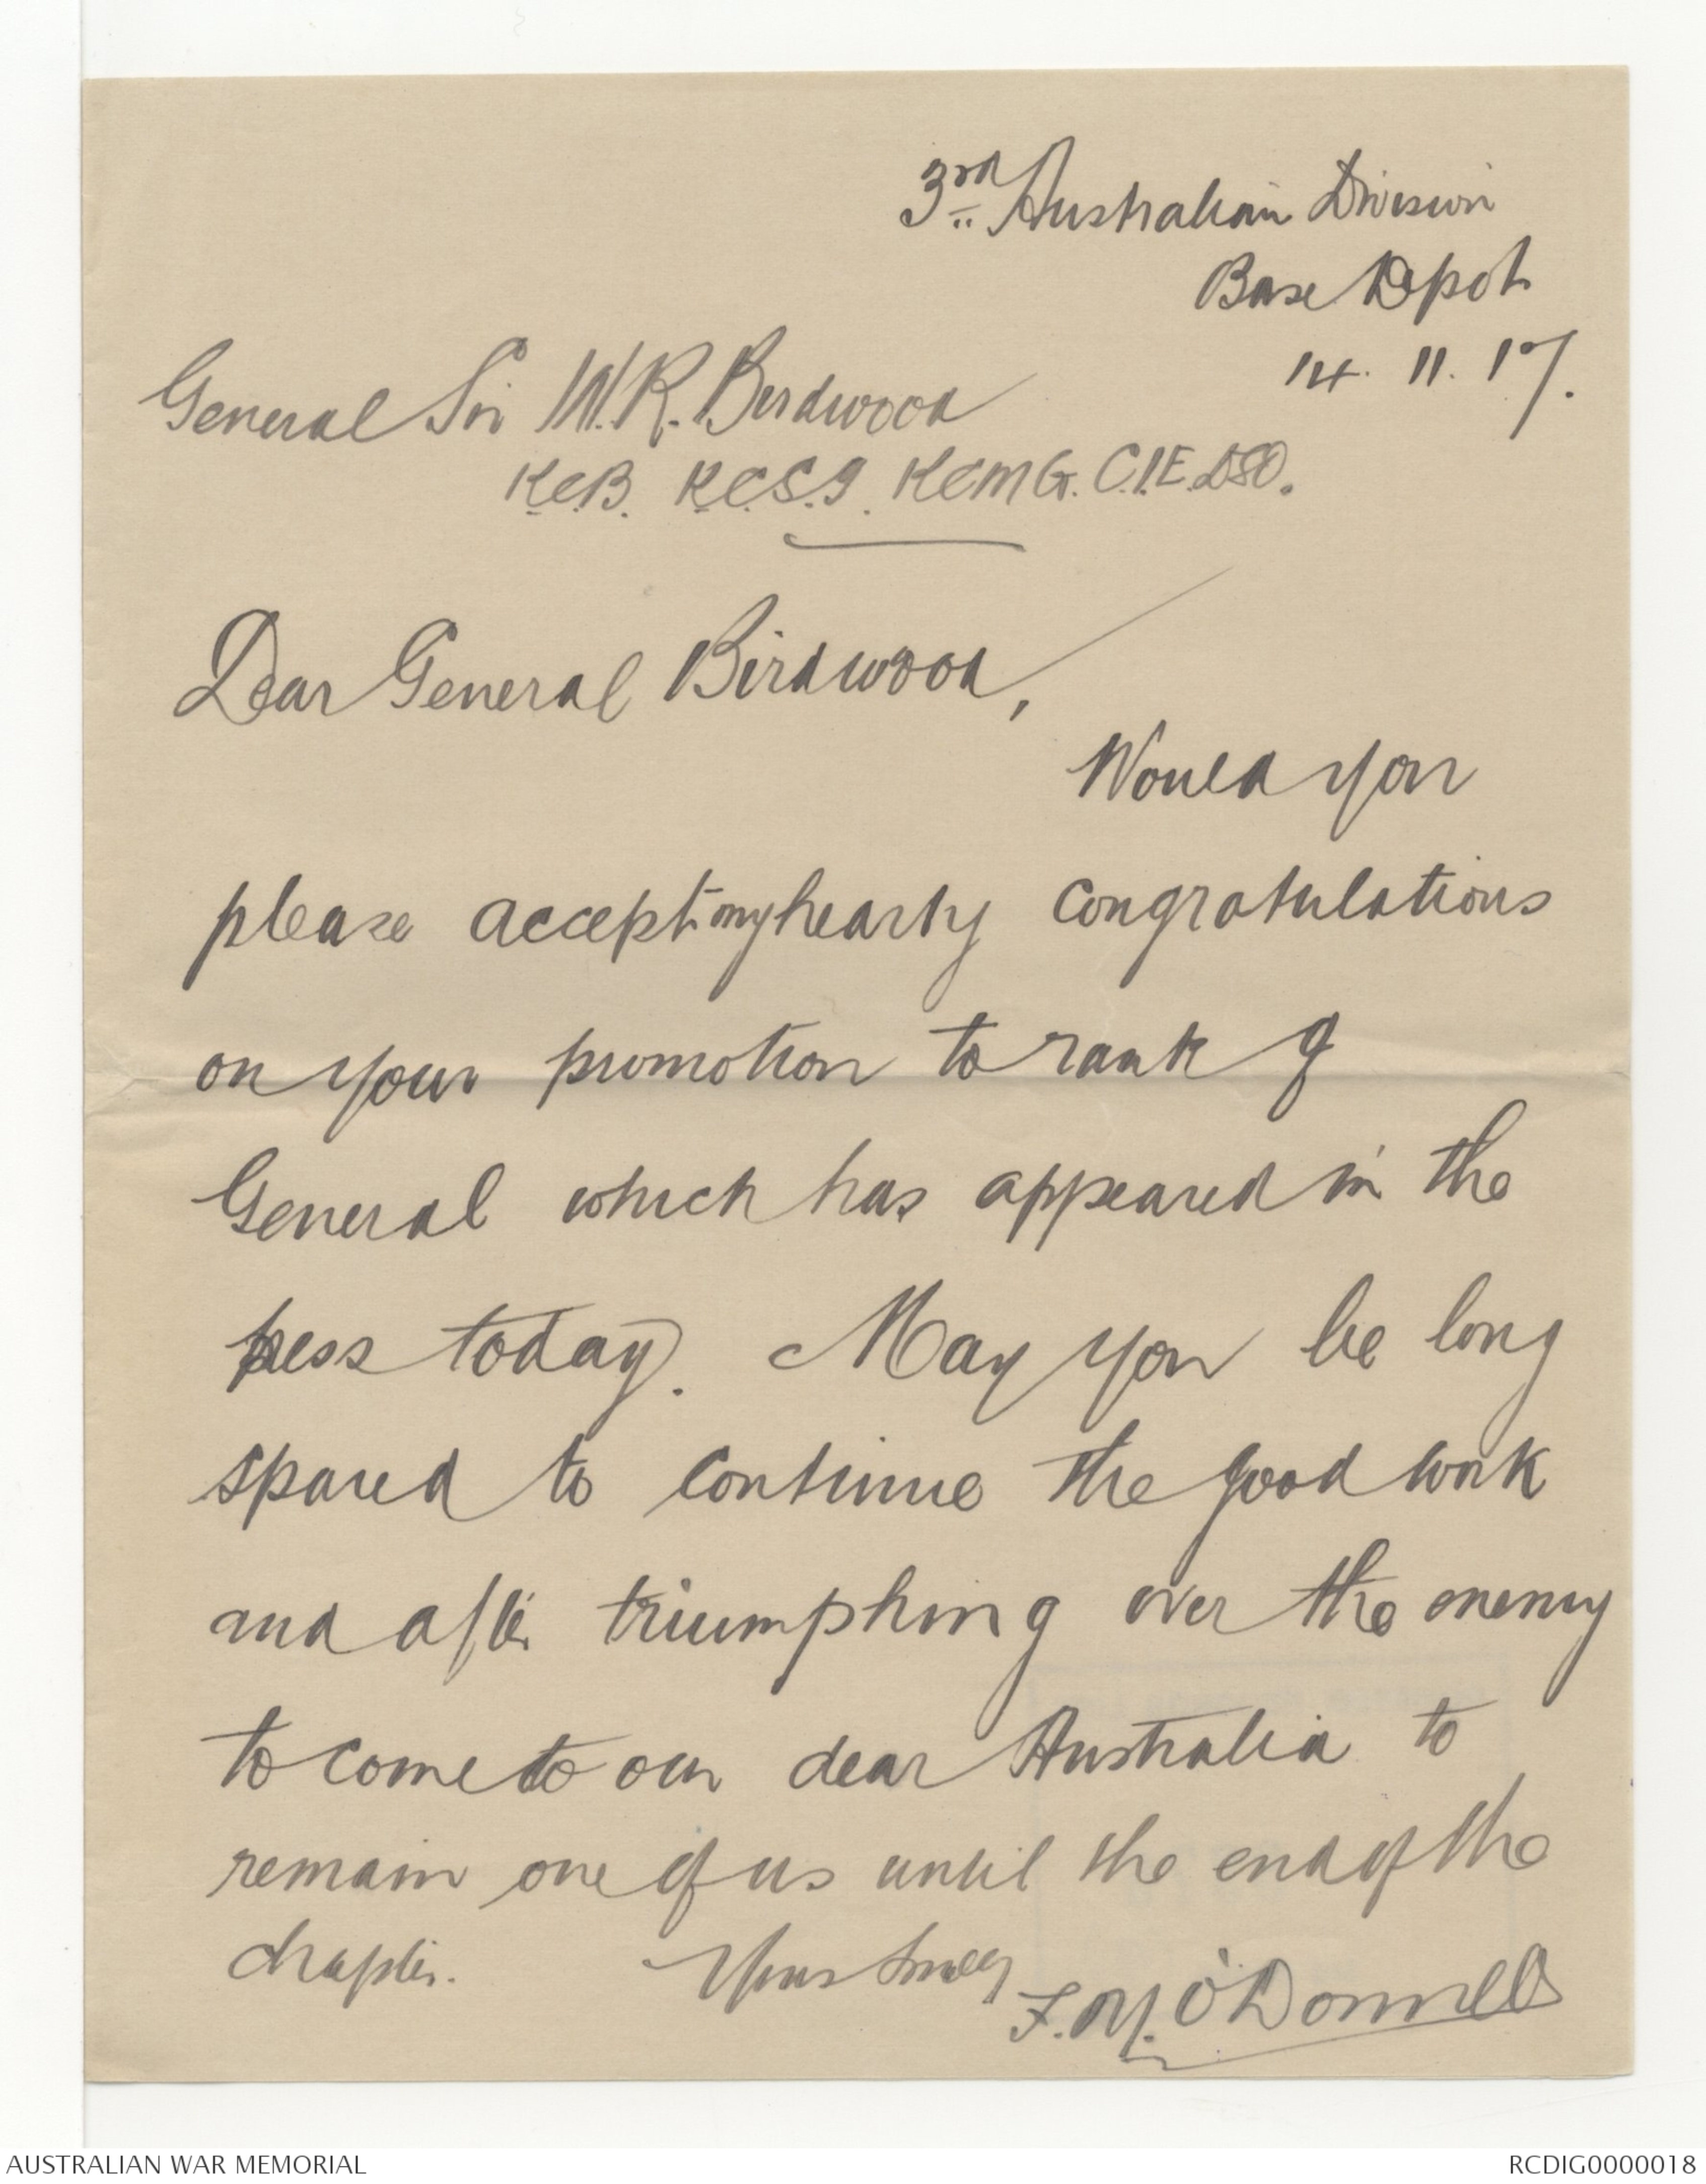 3rd Australian Division
Base Depot
14. 11. 17.
General Sir W.R. Birdwood
K.C.B. K.C.S.I. KCMG. C.I.E. DSO.
Dear General Birdwood,
Would you
please accept my hearty congratulations
on your promotion to rank of
General which has appeared in the
press today. May you be long
spared to continue the good work
and after triumphing over the enemy
to come to our dear Australia to
remain one of us until the end of the
chapter. Yours
F. M. O'Donnell
AUSTRALIAN WAR MEMORIAL
RCDIG0000018